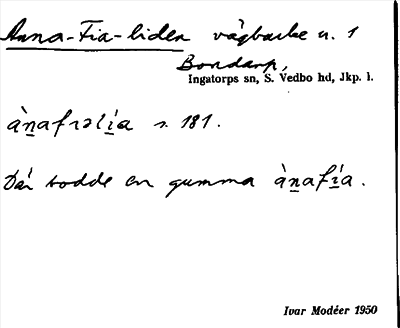 Anna-Fia-liden vägbacke n. 1
Bondarp,
Ingatorps sn, S. Vedbo hd, Jkp. l.
ànafiəlía s. 181.
Där bodde en gumma ànafía.
Ivar Modéer 1950